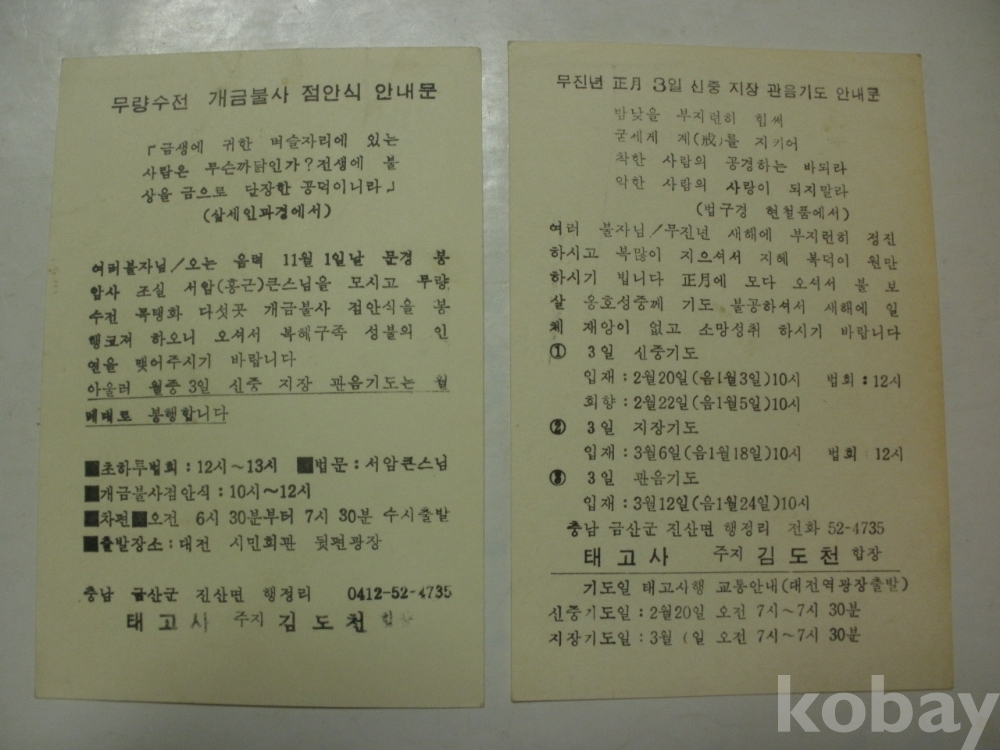 무량수전 개금불사 점안식 안내문
「금생에 귀한 벼슬자리에 있는
사람은 무슨까닭인가?전생에 불
상을 금으로 단장한 공덕이니라」
(삼세인과경에서)
여러불자님/오는 음력 11월 1일날 문경 봉
암사 조실 서암(홍근)큰스님을 모시고 무량
수전 목탱화 다섯곳 개금불사 점안식을 봉
행코져 하오니 오셔서 복혜구족 성불의 인
연을 맺어주시기 바랍니다
아울러 월중 3일 신중 지장 관음기도는
대로 봉행합니다
■초하루법회:12시~13시 ■법문:서암큰스님
■개금불사점안식:10시~12시
■차편■오전 6시 30분부터 7시 30분 수시출발
■출발장소:대전 시민회관 뒷편광장
충남 금산군 진산면 행정리 0412-52-4735
태고사 주지 김도천 합장
무진년 正月 3일 신중 지장 관음기도 안내문
밤낮을 부지런히 힘써
굳세게 계(戒)를 지키어
착한 사람의 공경하는 바되라
악한 사람의 사랑이 되지말라
(법구경 현철품에서)
여러 불자님/무진년 새해에 부지런히 정진
하시고 복많이 지으셔서 지혜 복덕이 원만
하시기 빕니다 正月에 모다 오셔서 불 보
살 옹호성중께 기도 불공하셔서 새해에 일
체 재앙이 없고 소망성취 하시기 바랍니다
① 3일 신중기도
입재:2월20일(음1월3일)10시 법회:12시
회향:2월22일(음1월5일)10시
② 3일 지장기도
입재:3월6일(음1월18일)10시 법회:12시
③ 3일 관음기도
입재:3월12일(음1월24일)10시
충남 금산군 진산면 행정리 전화 52-4735
태고사 주지 김도천 합장
기도일 태고사행 교통안내(대전역광장출발)
신중기도일:2월20일 오전 7시~7시 30분
지장기도일:3월 일 오전 7시~7시 30분
kobay